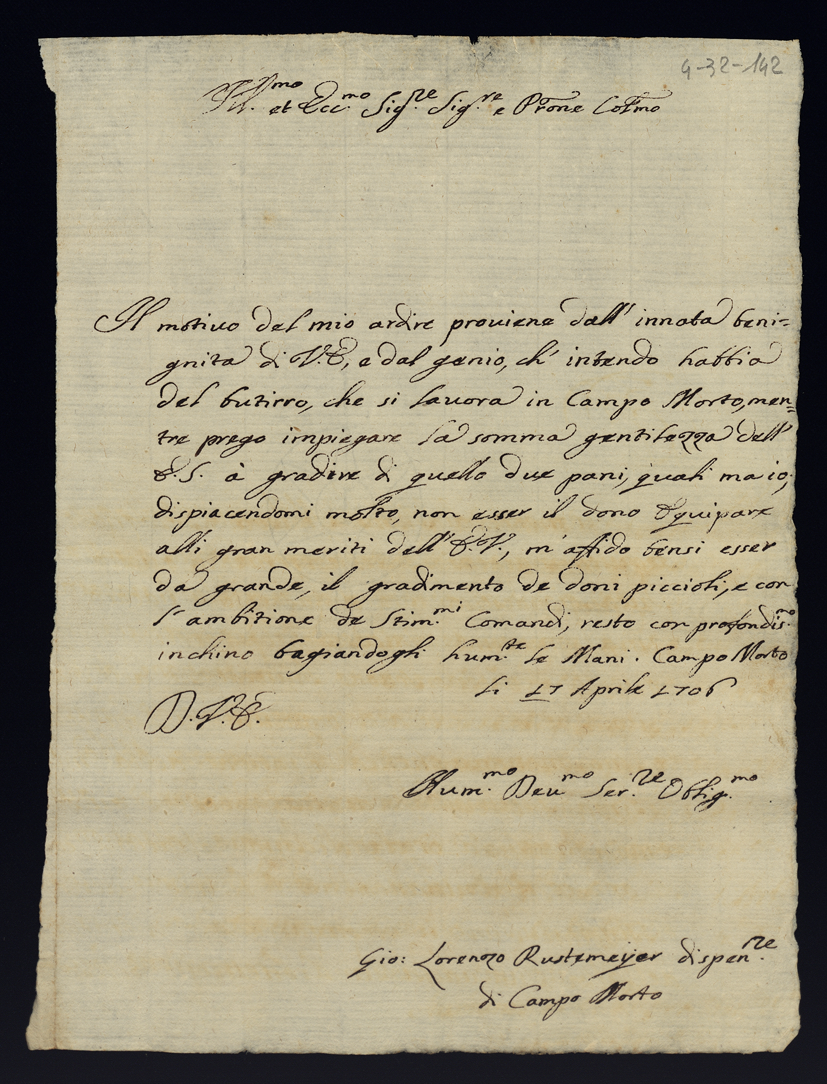 4-32-142
Ill.mo et Ecc.mo Sig.re Sig.re e Prone Col.mo
Il motivo del mio ardire proviene dall' innata beni=
gnita di V.E, e dal genio, ch' intendo habbia
del butirro, che si lavora in Campo Morto, men=
tre prego impiegare la somma gentilezza dell'
E.S. à gradire di quello due pani, quali ma io,
dispiacendomi molto, non esser il dono Equipare
alli gran meriti dell' E.V., m' affido bensi esser
da grande, il gradimento de doni piccioli, e con
l' ambitione de Stim.mi Comandi, resto con profondis.mo
inchino bagiandogli hum.te le Mani. Campo Morto
li 17 Aprile 1706
D.V.E.
Hum.mo Deu.mo Ser.re Oblig.mo
Gio: Lorenzo Rustemeijer dispen.re
di Campo Morto